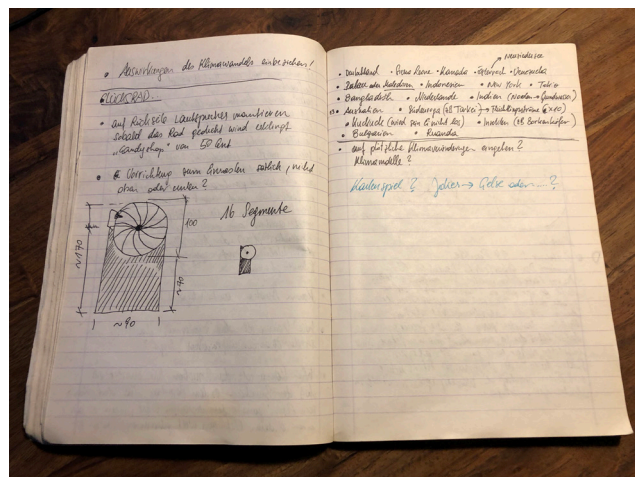 • Auswirkungen des Klimawandels einbeziehen!
GLÜCKSRAD
• auf Rückseite Lautsprecher montieren
sobald das Rad gedreht wird erklingt
„Candyshop“ von 50 Cent
• Vorrichtung zum Einrasten seitlich, nicht
oben oder unten?
16 Segmente
100
~170
~70
~90
Neusiedlersee
• Deutschland • Sierra Leone • Kanada • Österreich • Venezuela
• Indonesien • New York • Tokio
• Bangladesch • Niederlande • Indien
• Australien • Südeuropa (zB Türkei) →
• Kuckuck (wird von • Insekten (zB Borkenkäfer)
• Bulgarien • Ruanda
• auf plötzliche Klimaänderungen eingehen?
Klimamodelle?
Kartenspiel? Joker → Gelse oder ...?